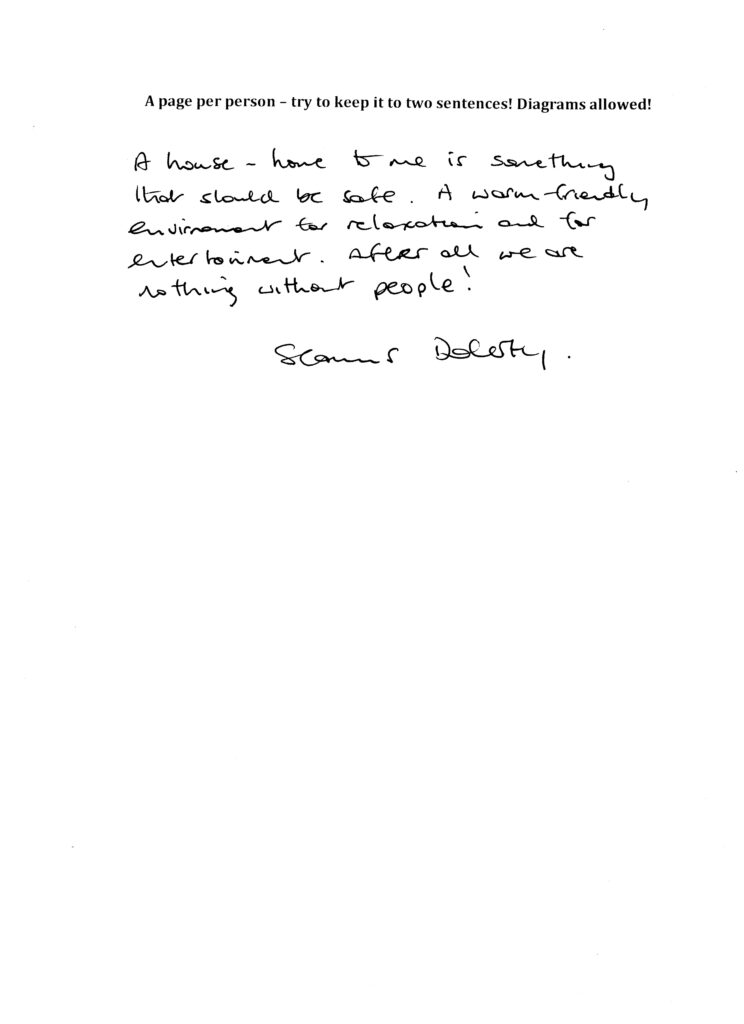 A page per person – try to keep it to two sentences! Diagrams allowed!
A house - home to me is something
that should be safe. A warm-friendly
envirnoment for relaxation and for
entertainment. After all we are
nothing without people!
Seamus Doherty.